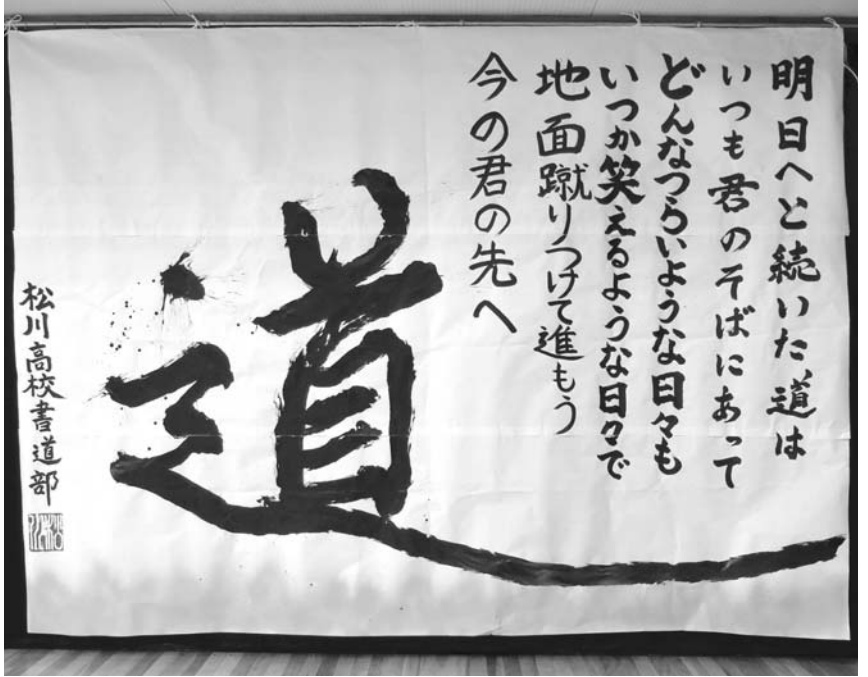 明日へと続いた道は
いつも君のそばにあって
どんなつらいような日々も
いつか笑えるような日々で
地面蹴りつけて進もう
今の君の先へ
道
松川高校書道部